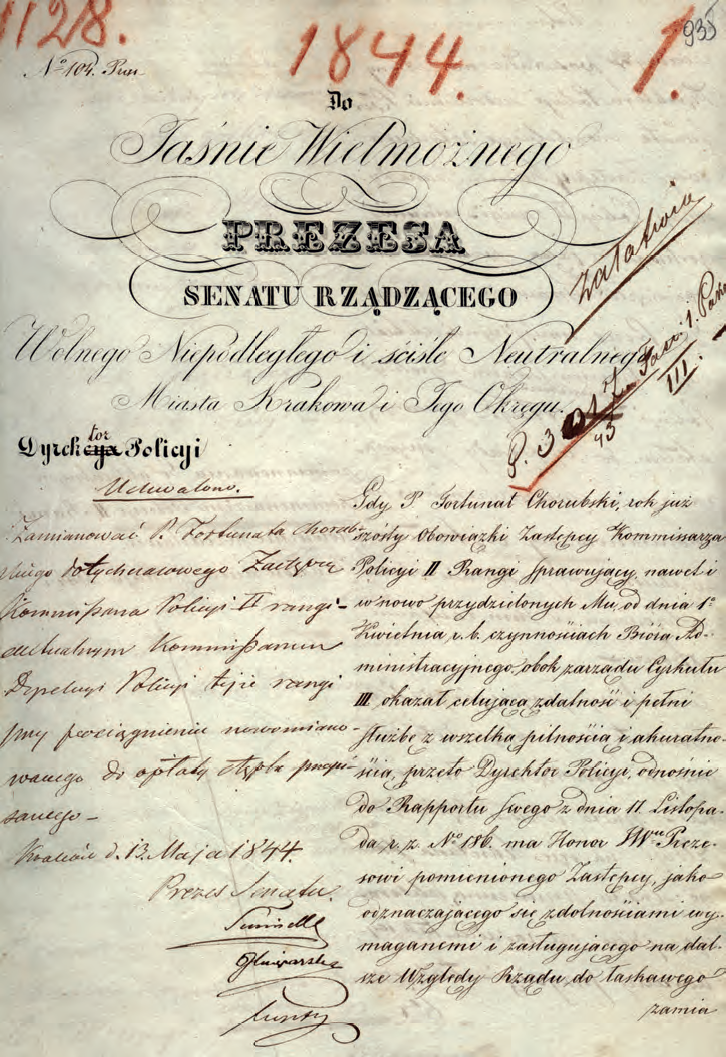 1128.
1844.
1.
935
Nº 104. Prez.
Do
Jaśnie Wielmożnego
PREZESA
SENATU RZĄDZĄCEGO
Wolnego Niepodległego i ściśle Neutralnego
Miasta Krakowa i Jego Okręgu.
załatwia
III.
Dyrekcya Policyi
tor
Uchwalono.
Zamianować P. Fortunata Chorub-
skiego dotychczasowego Zastępcę
Kommissarza Policyi II rangi
aktualnym Kommissarzem
Policyi tejże rangi
przy pociągnieniu nowomiano-
wanego do opłaty stępla przepi-
sanego –
Kraków d. 13. Maja 1844.
Prezes Senatu.
Gdy P. Fortunat Chorubski, rok już
szósty Obowiązki Zastępcy Kommissarza
Policyi II Rangi sprawujący, nawet i
w nowo przydzielonych Mu, od dnia 1º
Kwietnia r. b. czynnościach Bióra Ad-
ministracyjnego, obok zarządu Cyrkułu
III okazał celującą zdatność i pełni
służbę z wszelką pilnością i akuratno-
ścią, przeto Dyrektor Policyi, odnośnie
do Rapportu swego z dnia 11 Listopa-
da r. z. Nº 186. ma Honor JWmu Preze-
sowi pomienionego Zastępcy, jako
odznaczającego się zdolnościami wy-
maganemi i zasługującego na dal-
sze Względy Rządu do łaskawego
zamia